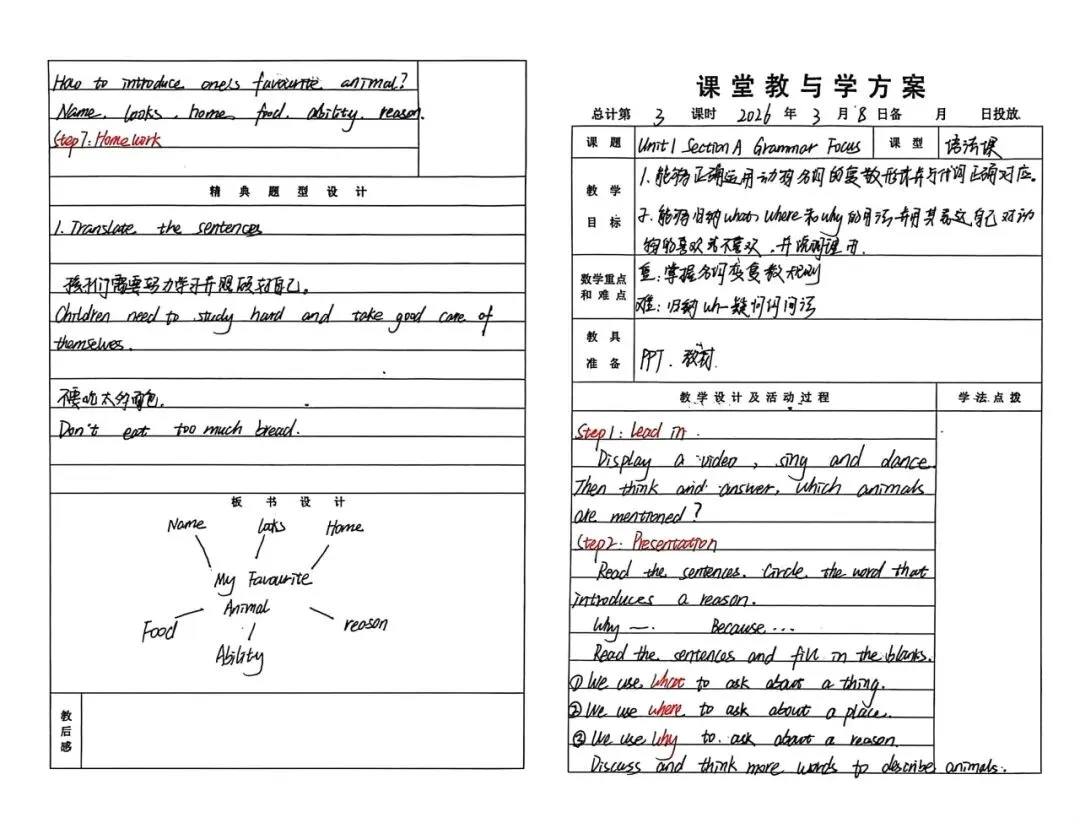 How to introduce one's favourite animal?
Name, looks, home, food, ability, reason
Step7: Homework
精典题型设计
1. Translate the sentences
孩子们需要努力学习并照顾好自己。
Children need to study hard and take good care of
themselves.
不要吃太多面包.
Don't eat too much bread.
板书设计
Name looks Home
My Favourite
Animal
Food reason
Ability
教后感
课堂教与学方案
总计第 3 课时 2026 年 3 月 8 日备 月 日投放
课题 Unit1 Section A Grammar Focus 课型 语法课
教学目标
1. 能够正确运用动物名词的复数形式并与代词正确对应。
2. 能够归纳what、where和why的用法并用其表达自己对动
物的喜欢或不喜欢,并说明理由.
教学重点和难点
重:掌握名词变复数规则
难:归纳wh-疑问词问法
教具准备 PPT. 教材.
教学设计及活动过程 学法点拨
Step1: Lead in.
Display a video, sing and dance.
Then think and answer, which animals
are mentioned?
Step2: Presentation
Read the sentences. Circle the word that
introduces a reason.
Why —. Because...
Read the sentences and fill in the blanks.
① We use what to ask about a thing.
② We use where to ask about a place.
③ We use why to ask about a reason.
Discuss and think more words to describe animals.